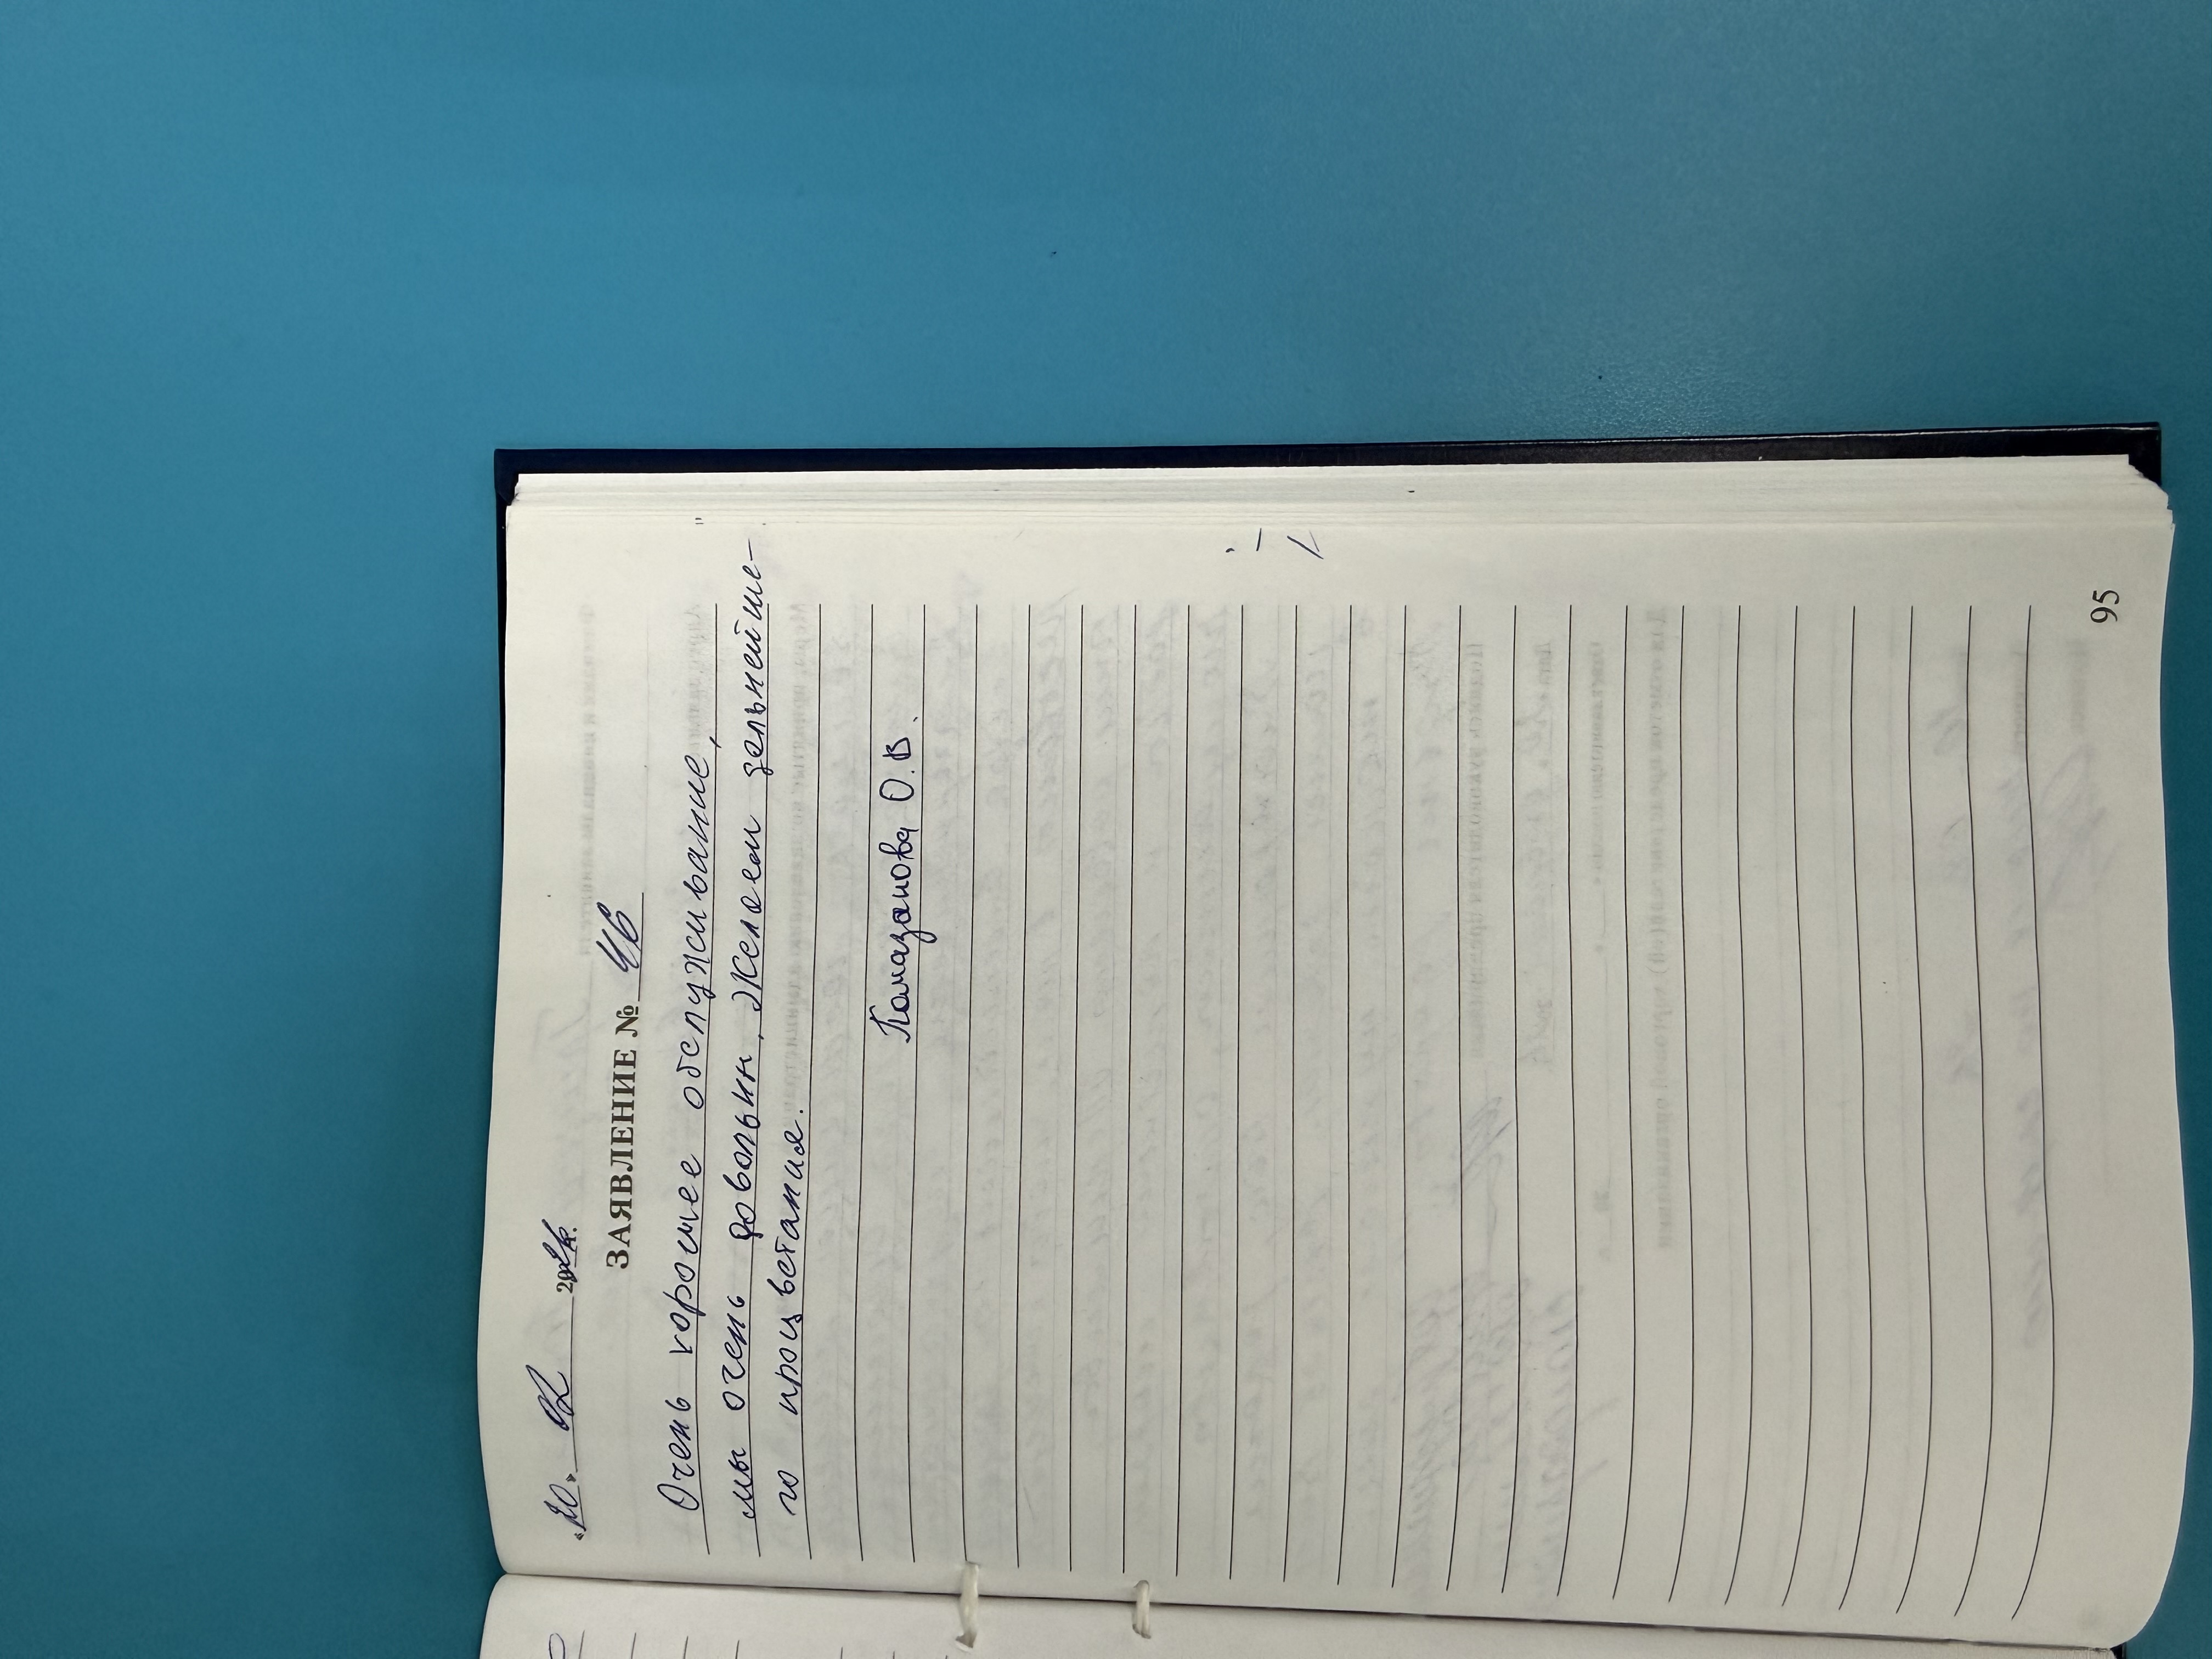 «20» 02 2024г.
ЗАЯВЛЕНИЕ № 46
Очень хорошее обслуживание,
мы очень довольны, Желаем дальнейше-
го процветания.
О.В.
95